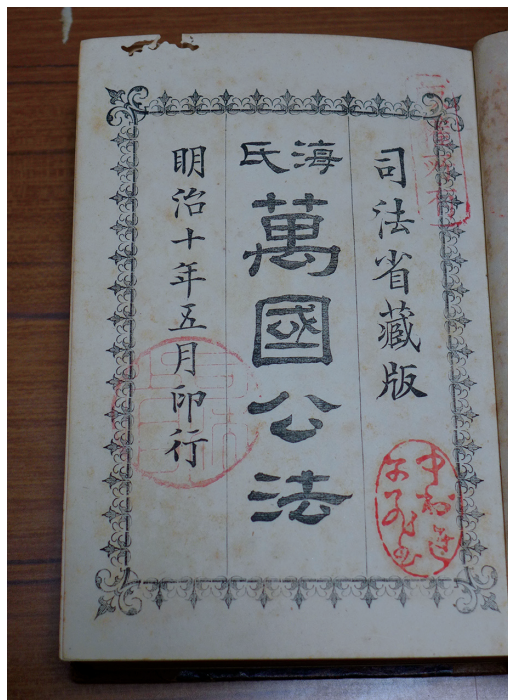 司法省藏版
海氏
萬國公法
明治十年五月印行